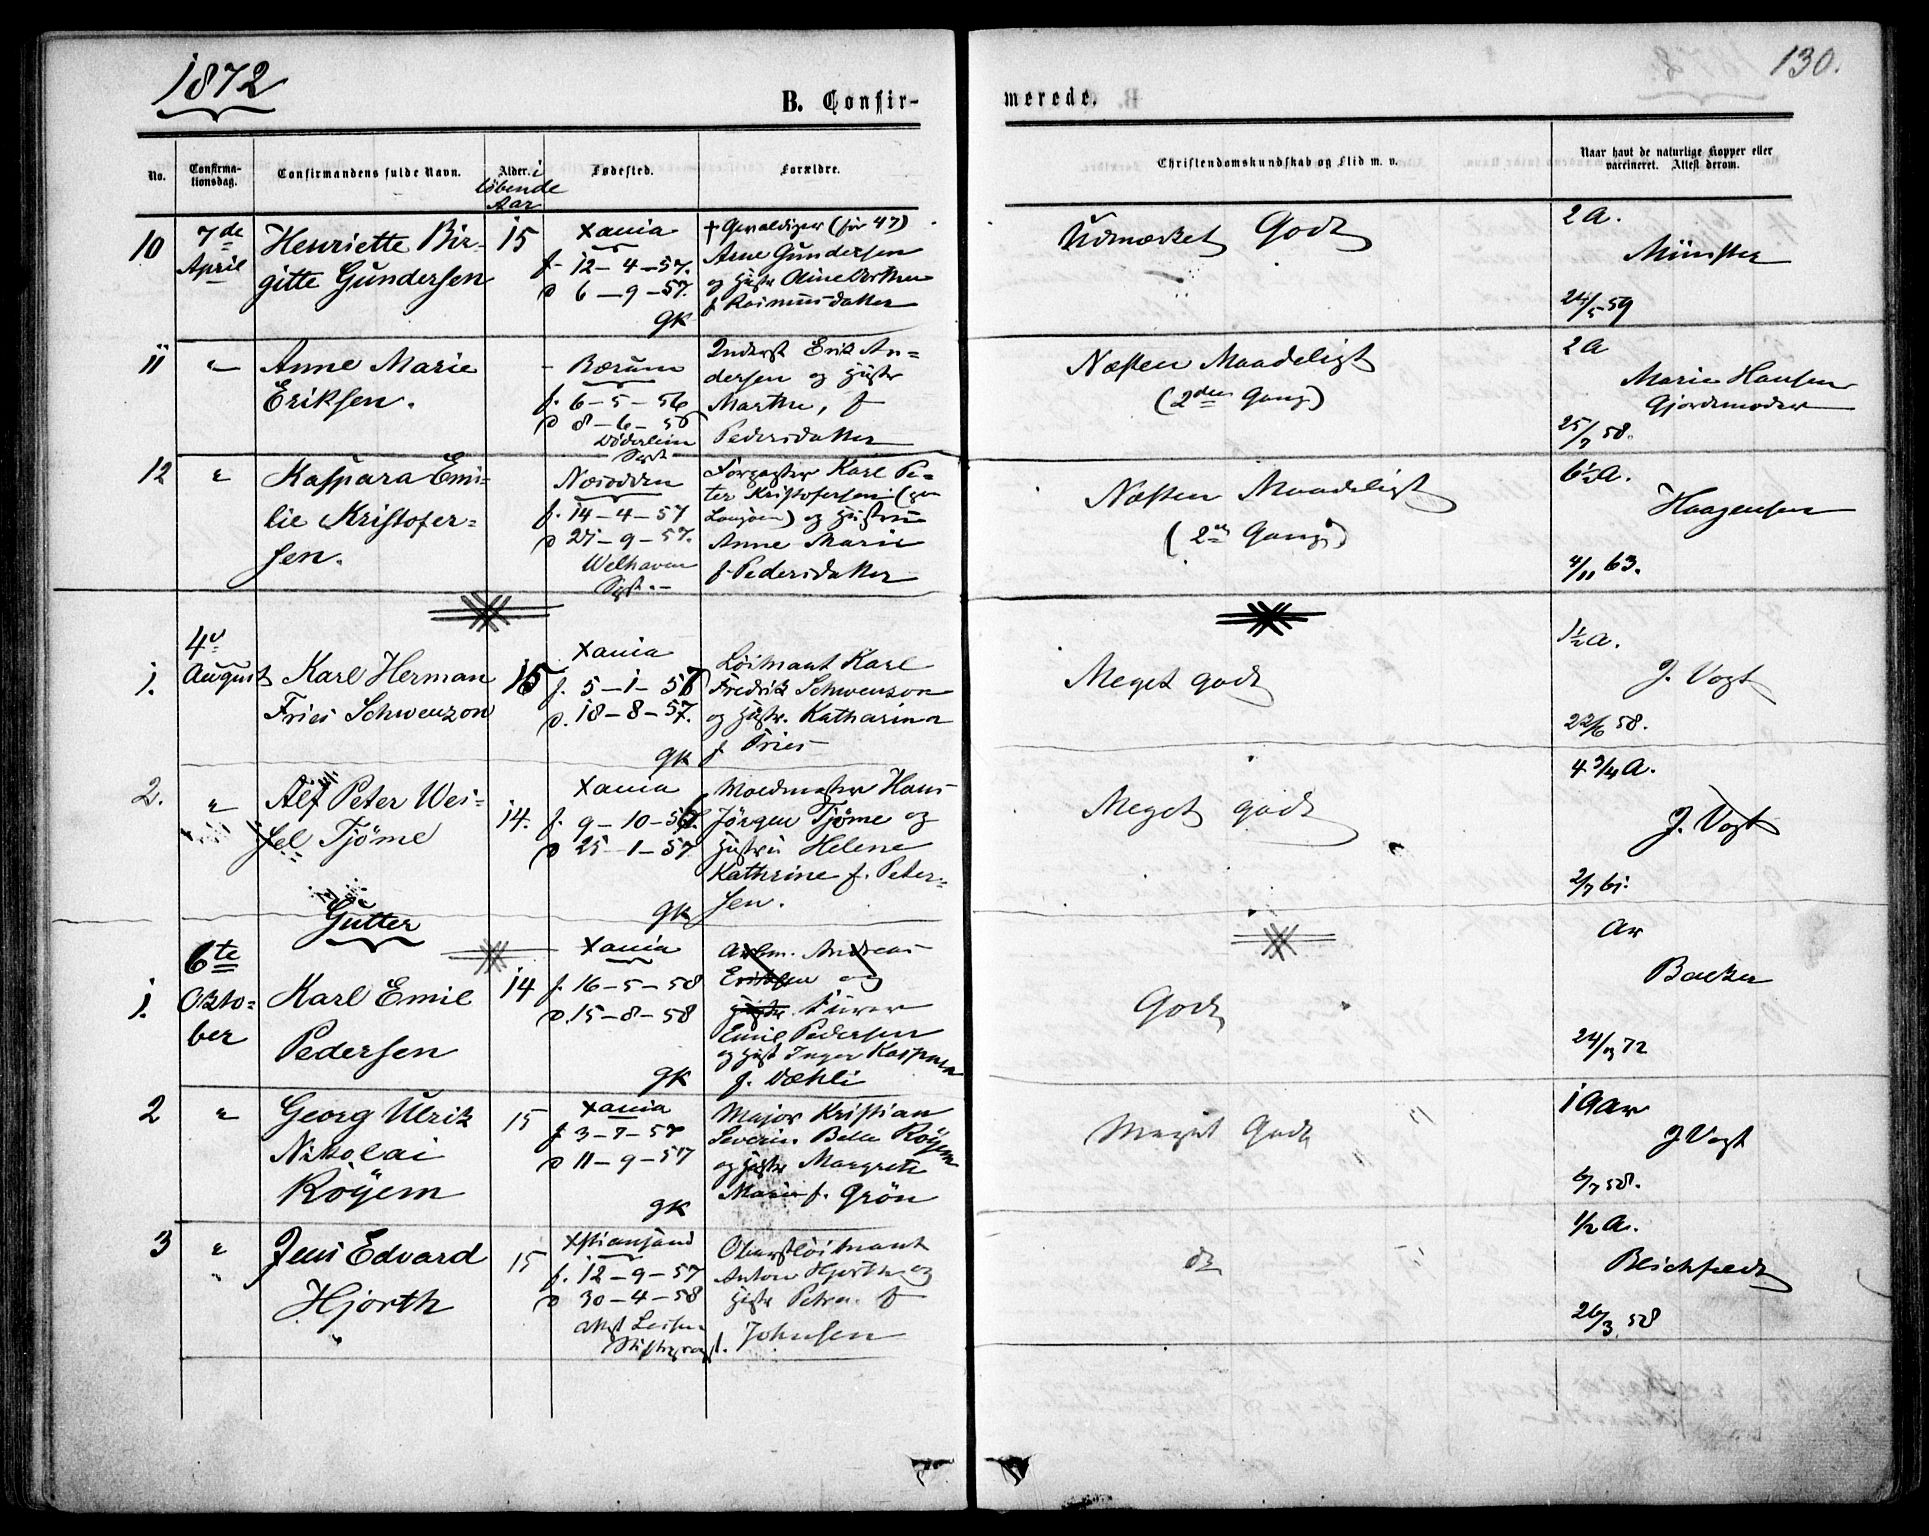 1872
130.
B. Confir-
merede.
No.
Confirma-
tionsdag.
Confirmandens fulde Navn.
Alder. i
løbende
Aar
Fødested.
Forældre.
Christendomskundskab og Flid m. v.
Naar havt de naturlige Kopper eller
vaccineret. Attest derom.
10
7de
April
Henriette Bir-
gitte Gundersen
15
Xania
f. 12-4-57.
D 6-9-57.
GK
+ Gevaldiger (før 47)
Arne Gundersen
og Hustr Oline Dorthea
f Rasmusdatter
Udmærket Godt
2 A.
Münster
24/5 59
11
"
Anne Marie
Eriksen.
-
Bærum
f. 6-5-56
D 8-6-56
Døderlein
Sgpr.
Inderst Erik An-
dersen og Hustr
Marthe, f
Pedersdatter
Næsten Maadeligt
(2den Gang)
2 A
Marie Hansen
Gjordemoder
25/7 58.
12
"
Kaspara Emi-
lie Kristofer-
sen.
Næsodden
f. 14-4-57
D 27-9-57.
Welhaven
Sgpr.-
Karl Pe-
ter Kristofersen
og Hustru
Anne Marie
f Pedersdatter
Næsten Maadeligt
(2en Gang)
6½ A.
Haagensen
4/11 63.
4de
August
1.
Karl Herman
Fries Schwenzon
15
Xania
f. 5-1-57
D. 18-8-57.
GK
Løitnant Karl
Fredrik Schwenzon
og Hustr. Katharina
f Fries
Meget godt
1½ A.
J. Vogt
22/6 58.
2.
"
Alf Peter Wei-
sel Tjöme
14.
Xania
f. 9-10-56.
D 25-1-57
GK
Hans
Jörgen Tjöme og
Hustru Helene
Kathrine f. Peter-
sen.
Meget godt
4 3/4 A.
J. Vogt
2/7 61.
Gutter
6te
Okto-
ber
1.
Karl Emil
Pedersen
14
Xania
f. 16-5-58
D. 15-8-58
GK
Arbm. Andreas
Eriksen og
Hustr.
Emil Pedersen
og Hust Inger Kaspara
f. Væhli
Godt
Ar
Backer
24/9 72
2
"
Georg Ulrik
Nikolai
Röyem
15
Xania
f 3-7-57
D 11-9-57
GK
Major Kristian
Severin Belle Röyem
og Hustr Margrete
Marie f. Grön
Meget Godt
1 Aar
J Vogt
6/7 58.
3
"
Jens Edvard
Hjorth
15
Xstiansand
f. 12-9-57
D 30-4-58
Oberstlöitnant
Anton Hjorth og
Hustr Petra f
Johnsen
do
½ A.
Blichfeldt
26/3 58